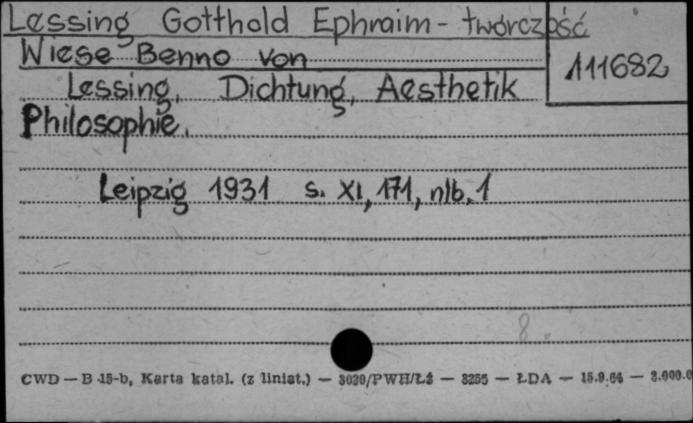 Lessing Gotthold Ephraim - twórczość
Wiese Benno von
111682
Lessing, Dichtung, Aesthetik
Philosophie.
Leipzig 1931 s. XI, 171, nlb. 1
8.
CWD — B 15-b, Karta katal. (z liniat.) — 3020/PWH/Łź — 3255 — ŁDA — 15.9.64 —